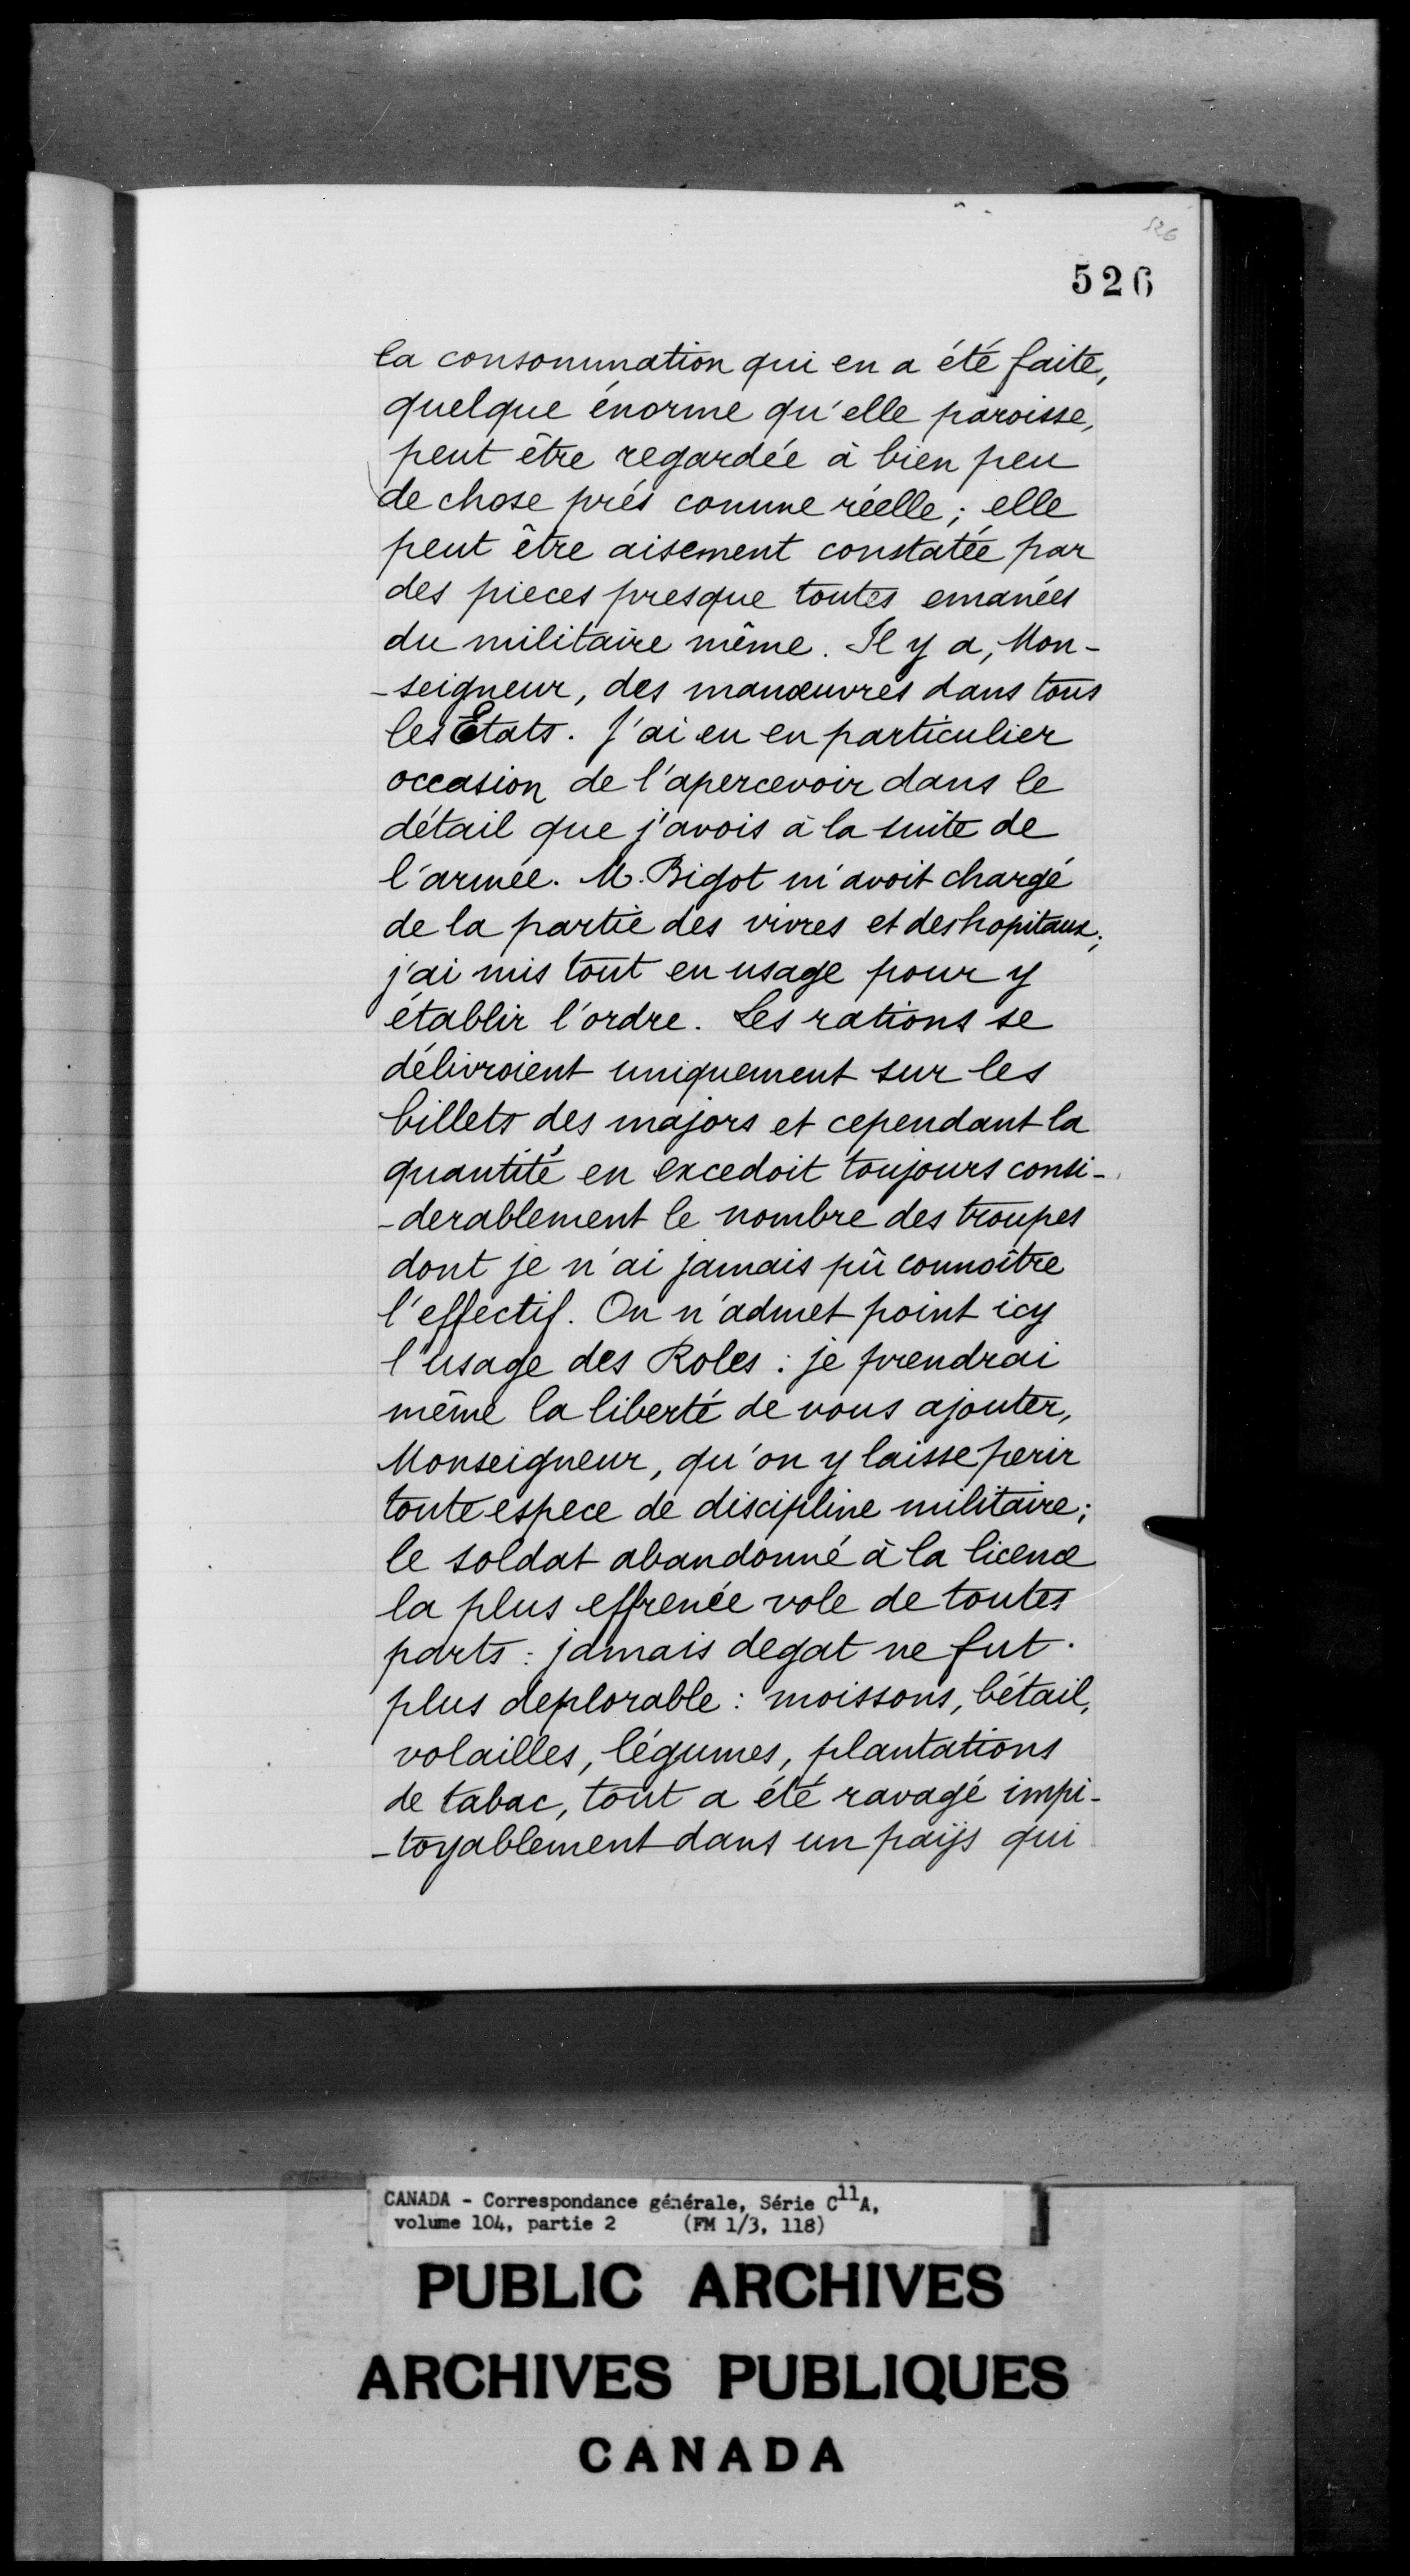 526
526
la consommation qui en a été faite,
quelque énorme qu'elle paroisse,
peut être regardée à bien peu
de chose prés comme réelle; elle
peut être aisement constatée par
des pieces presque toutes emanées
du militaire même. Il y a, Mon-
-seigneur, des manœuvres dans tous
les Etats. J'ai eu en particulier
occasion de l'apercevoir dans le
détail que j'avois à la suite de
l'armée. M. Bigot m'avoit chargé
de la partie des vivres et des hopitaux;
j'ai mis tout en usage pour y
établir l'ordre. Les rations se
délivroient uniquement sur les
billets des majors et cependant la
quantité en excedoit toujours consi-
-derablement le nombre des troupes
dont je n'ai jamais pû connoître
l'effectif. On n'admet point icy
l'usage des Roles : je prendrai
même la liberté de vous ajouter,
Monseigneur, qu'on y laisse perir
toute espece de discipline militaire;
le soldat abandonné à la licence
la plus effrenée vole de toutes
parts : jamais degat ne fut
plus deplorable : moissons, bétail,
volailles, légumes, plantations
de tabac, tout a été ravagé impi-
-toyablement dans un païs qui
CANADA - Correspondance générale, Série C11A,
volume 104, partie 2 (FM 1/3, 118)
PUBLIC ARCHIVES
ARCHIVES PUBLIQUES
CANADA